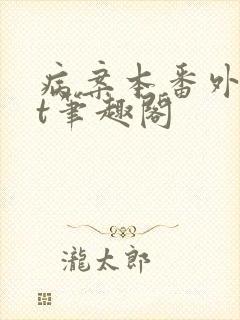 病案本番外
t笔趣阁
瀧太郎